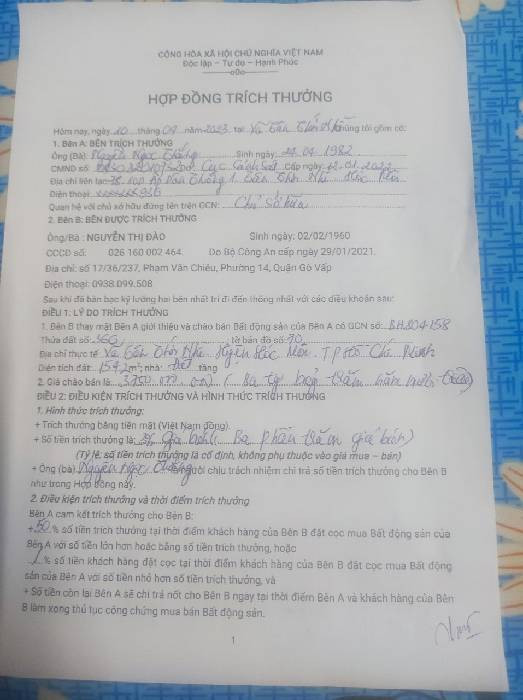 CỘNG HÒA XÃ HỘI CHỦ NGHĨA VIỆT NAM
Độc lập – Tự do – Hạnh Phúc
HỢP ĐỒNG TRÍCH THƯỞNG
Hôm nay, ngày 10 tháng 04 năm 2023 tại Xã Tân Thới Nhì chúng tôi gồm có:
1. Bên A: BÊN TRÍCH THƯỞNG
Ông (Bà): Nguyễn Ngọc Sinh ngày: 24.04.1982
CMND số: Cục Cảnh Sát Cấp ngày:
Địa chỉ liên lạc: Ấp Dân Thắng 1 Tân Thới Nhì Hóc Môn
Điện thoại:
Quan hệ với chủ sở hữu đứng tên trên GCN: Chủ Sở hữu
2. Bên B: BÊN ĐƯỢC TRÍCH THƯỞNG
Ông/Bà : NGUYỄN THỊ ĐÀO Sinh ngày: 02/02/1960
CCCD số: 026 160 002 464. Do Bộ Công An cấp ngày 29/01/2021.
Địa chỉ: số 17/36/237, Phạm Văn Chiêu, Phường 14, Quận Gò Vấp
Điện thoại: 0938.099.508
Sau khi đã bàn bạc kỹ lưỡng hai bên nhất trí đi đến thống nhất với các điều khoản sau:
ĐIỀU 1: LÝ DO TRÍCH THƯỞNG
1. Bên B thay mặt Bên A giới thiệu và chào bán Bất động sản của Bên A có GCN số: BH804158
Thửa đất số: 366 tờ bản đồ số 90
Địa chỉ thực tế: Xã Tân Thới Nhì Huyện Hóc Môn. TP Hồ Chí Minh
Diện tích đất: 159,2 m²; nhà: tầng
2. Giá chào bán là: 3.750.000.000 ( Ba tỷ bảy trăm năm mươi triệu)
ĐIỀU 2: ĐIỀU KIỆN TRÍCH THƯỞNG VÀ HÌNH THỨC TRÍCH THƯỞNG
1. Hình thức trích thưởng:
+ Trích thưởng bằng tiền mặt (Việt Nam đồng).
+ Số tiền trích thưởng là: 3% giá bán ( Ba phần trăm giá bán)
(Tỷ lệ, số tiền trích thưởng là cố định, không phụ thuộc vào giá mua – bán)
+ Ông (bà) Nguyễn Ngọc người chịu trách nhiệm chi trả số tiền trích thưởng cho Bên B
như trong Hợp Đồng này.
2. Điều kiện trích thưởng và thời điểm trích thưởng
Bên A cam kết trích thưởng cho Bên B:
+ 50 % số tiền trích thưởng tại thời điểm khách hàng của Bên B đặt cọc mua Bất động sản của
Bên A với số tiền lớn hơn hoặc bằng số tiền trích thưởng, hoặc
% số tiền khách hàng đặt cọc tại thời điểm khách hàng của Bên B đặt cọc mua Bất động
sản của Bên A với số tiền nhỏ hơn số tiền trích thưởng, và
+ Số tiền còn lại Bên A sẽ chi trả nốt cho Bên B ngay tại thời điểm Bên A và khách hàng của Bên
B làm xong thủ tục công chứng mua bán Bất động sản.
1